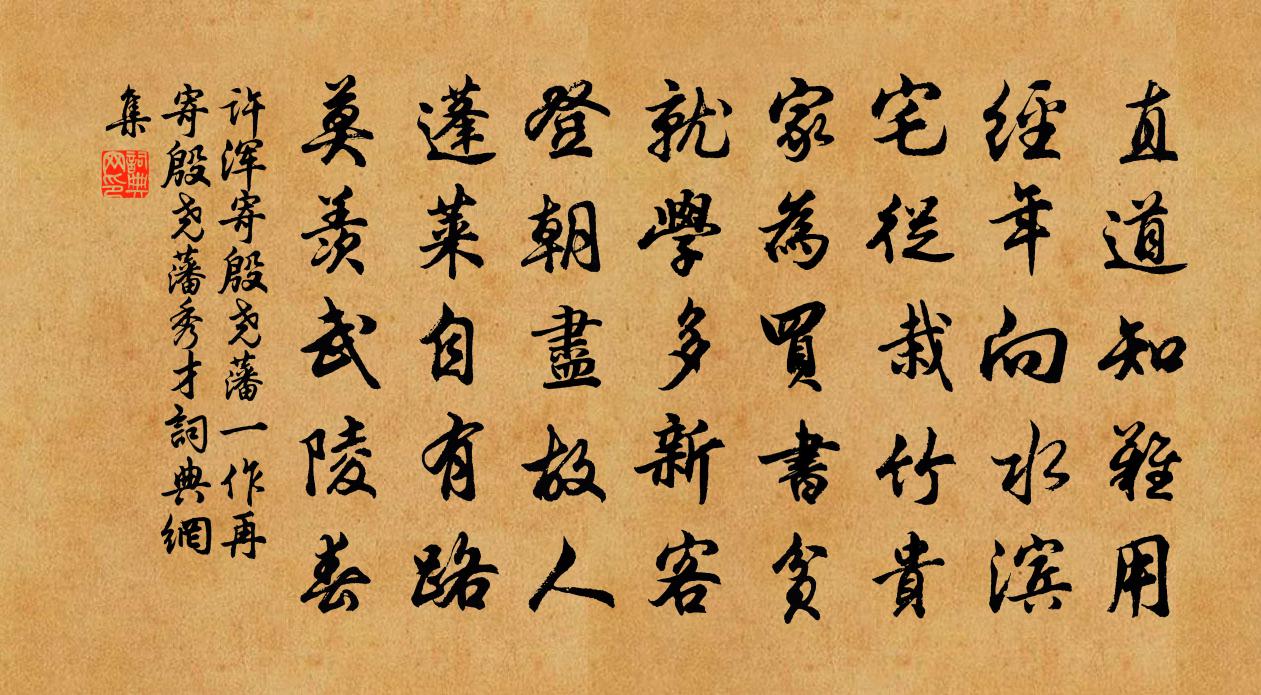 直道知難用
經年向水滨
宅從栽竹貴
家為買書貧
就學多新客
登朝盡故人
蓬萊自有路
莫羨武陵春
许浑寄殷尧藩一作再
寄殷尧藩秀才詞典網
集
詞典网印